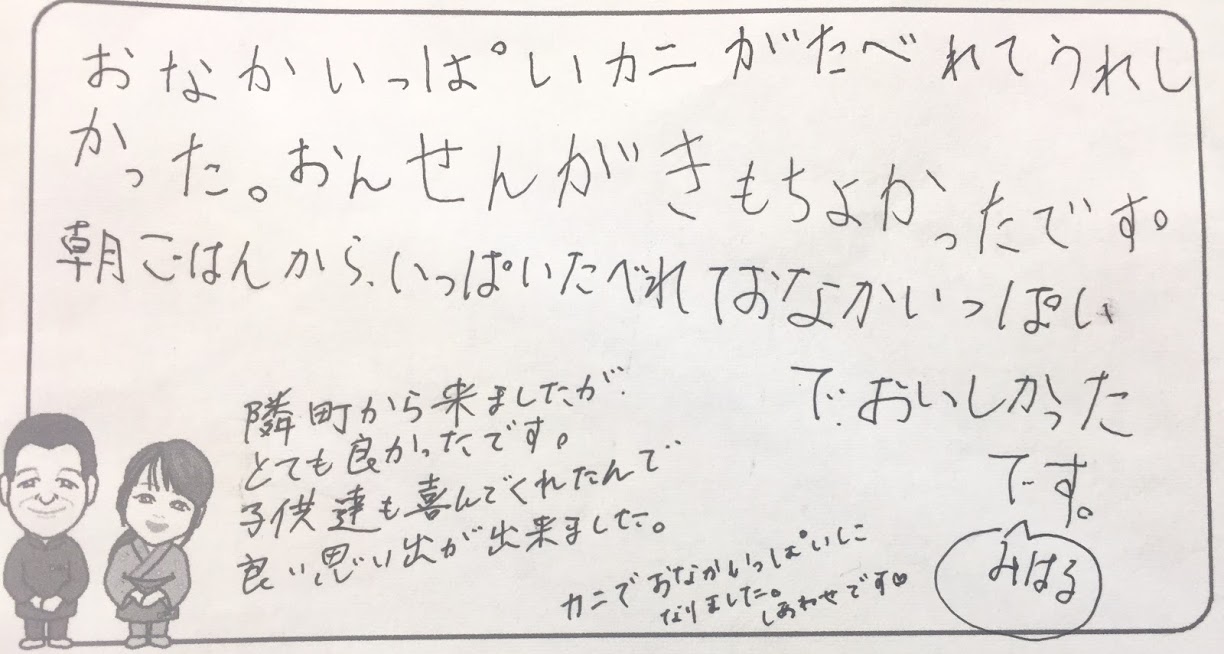 おなかいっぱいカニがたべれてうれし
かった。おんせんがきもちよかったです。
朝ごはんから、いっぱいたべれておなかいっぱい
で、おいしかった
です。
みはる
隣町から来ましたが、
とても良かったです。
子供達も喜んでくれたんで
良い思い出が出来ました。
カニでおなかいっぱいに
なりました。
しあわせです♡